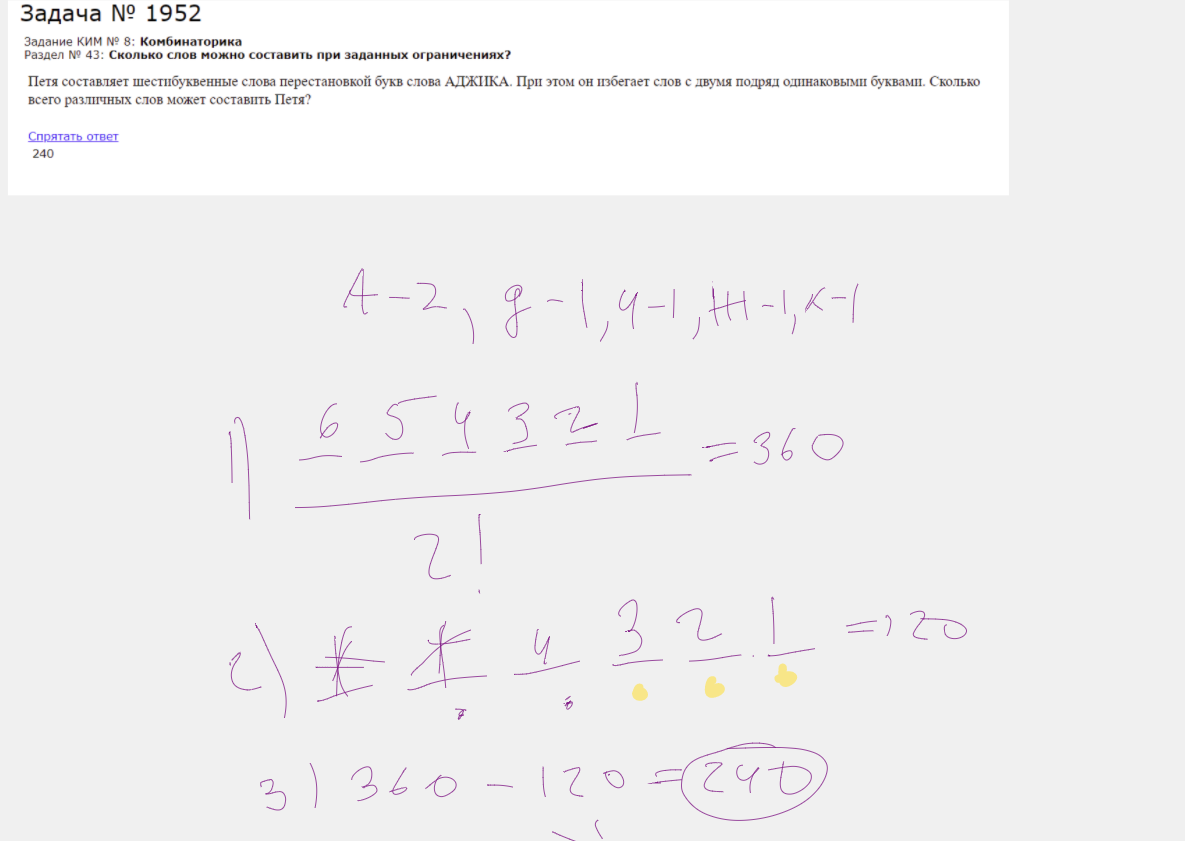 Задача № 1952
Задание КИМ № 8: Комбинаторика
Раздел № 43: Сколько слов можно составить при заданных ограничениях?
Петя составляет шестибуквенные слова перестановкой букв слова АДЖИКА. При этом он избегает слов с двумя подряд одинаковыми буквами. Сколько
всего различных слов может составить Петя?
Спрятать ответ
240
А-2, д-1, и-1, ж-1, к-1
1) 6 5 4 3 2 1 = 360
2!
2) * * 4 3 2 1 = 120
3) 360 - 120 = 240